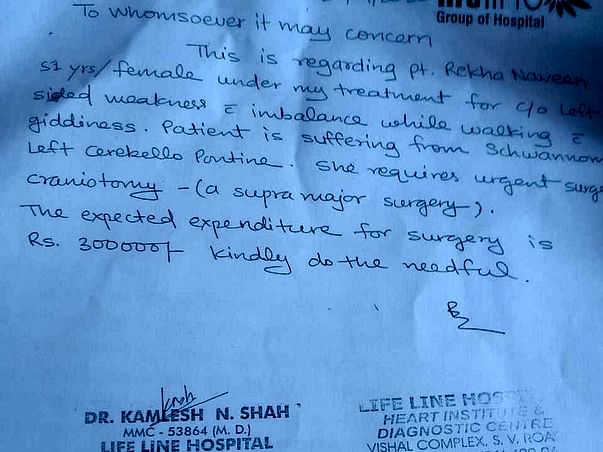 Group of Hospital
To whomsoever it may concern
This is regarding pt. Rekha Naveen
51 yrs/female under my treatment for c/o Left
sided weakness c̄ imbalance while walking c̄
giddiness. Patient is suffering from Schwannom
Left Cerebello Pontine. She requires urgent surg
craniotomy - (a supra major surgery).
The expected expenditure for surgery is
Rs. 300000/- kindly do the needful.
DR. KAMLESH N. SHAH
MMC - 53864 (M. D.)
LIFE LINE HOSPITAL
LIFE LINE HOS
HEART INSTITUTE &
DIAGNOSTIC CENTRE
VISHAL COMPLEX, S. V. ROA